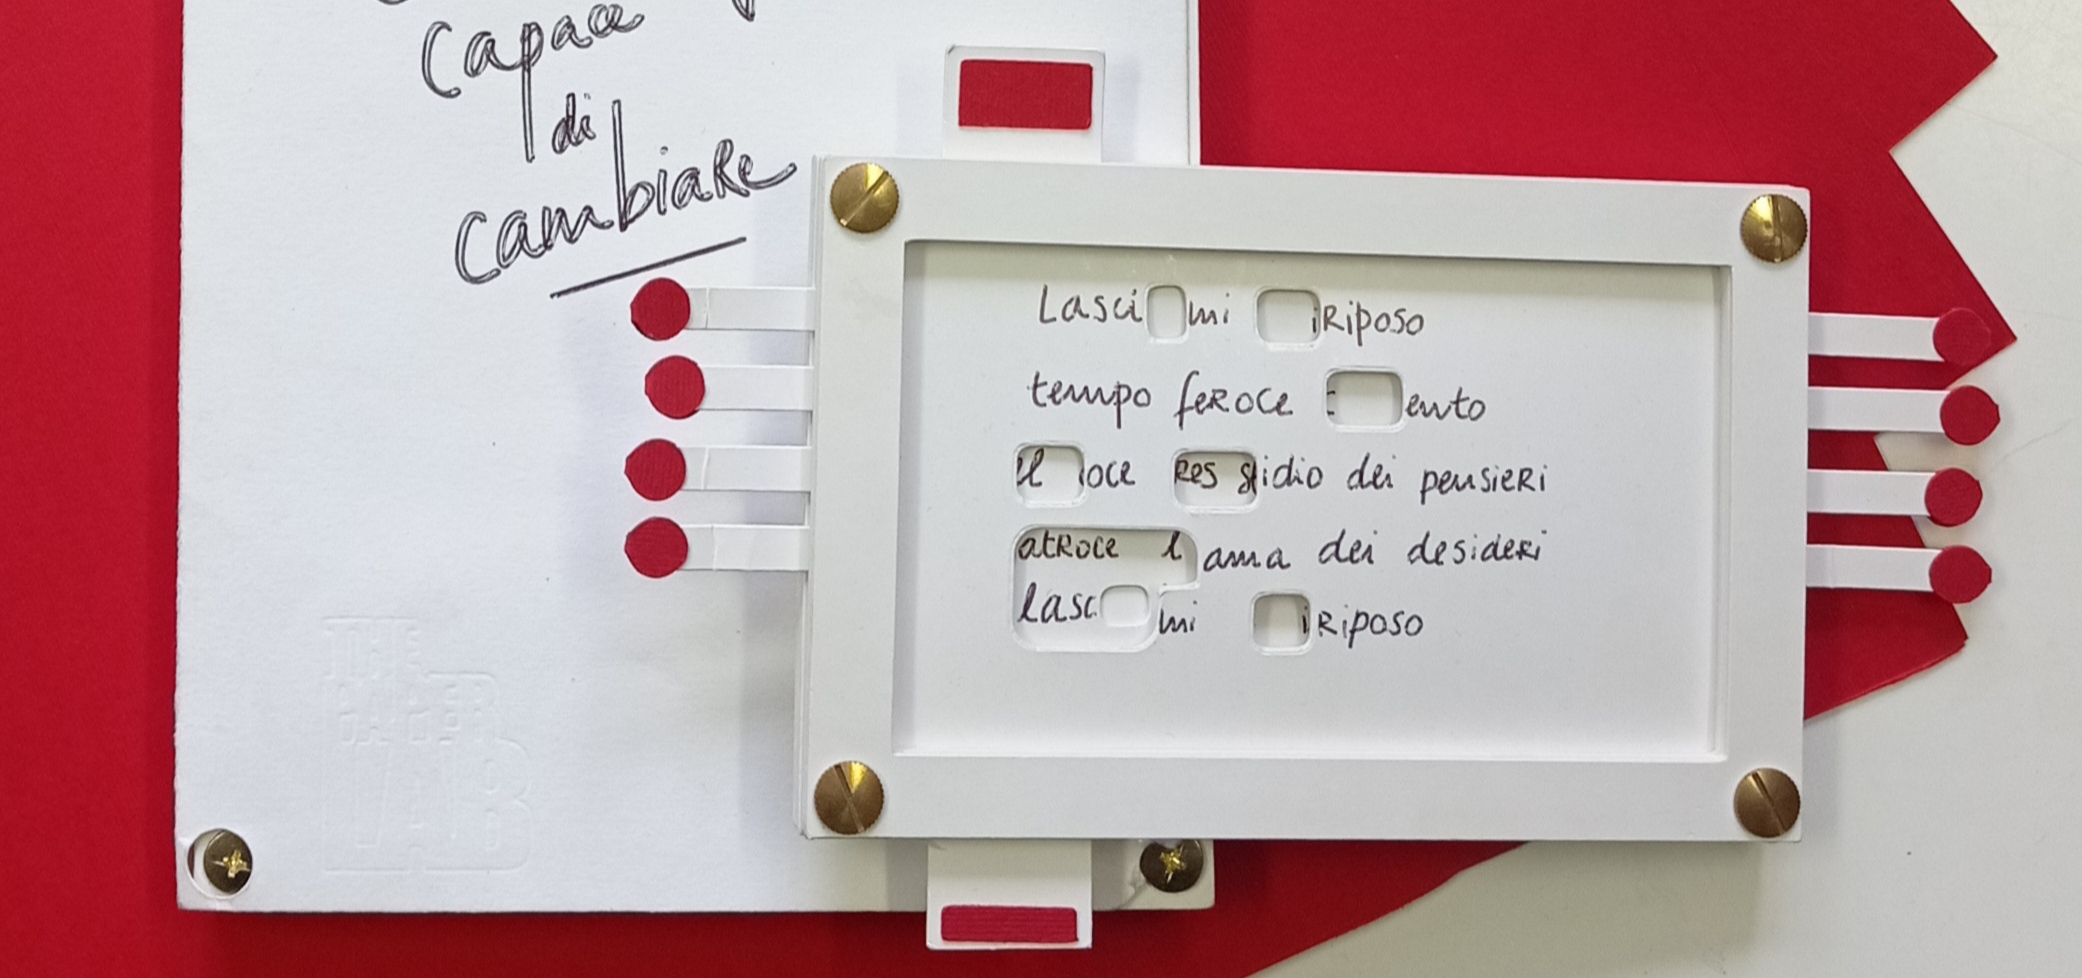 capace
di
cambiare
Lasci mi iRiposo
tempo feroce ento
il oce Res sidio dei pensieri
atroce l ama dei desideri
lasc mi iRiposo
THE
PAPER
LAB